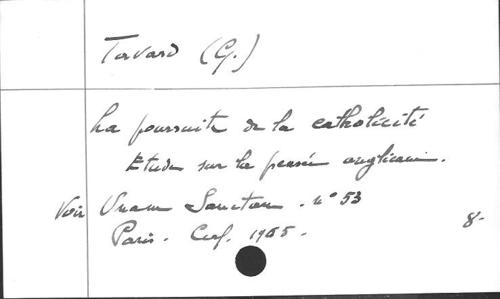 Tavard (G.)
La poursuite de la catholicité
Etude sur la pensée anglicane.
Voir Unam Sanctam. n° 53
Paris. Cerf. 1965.
8-